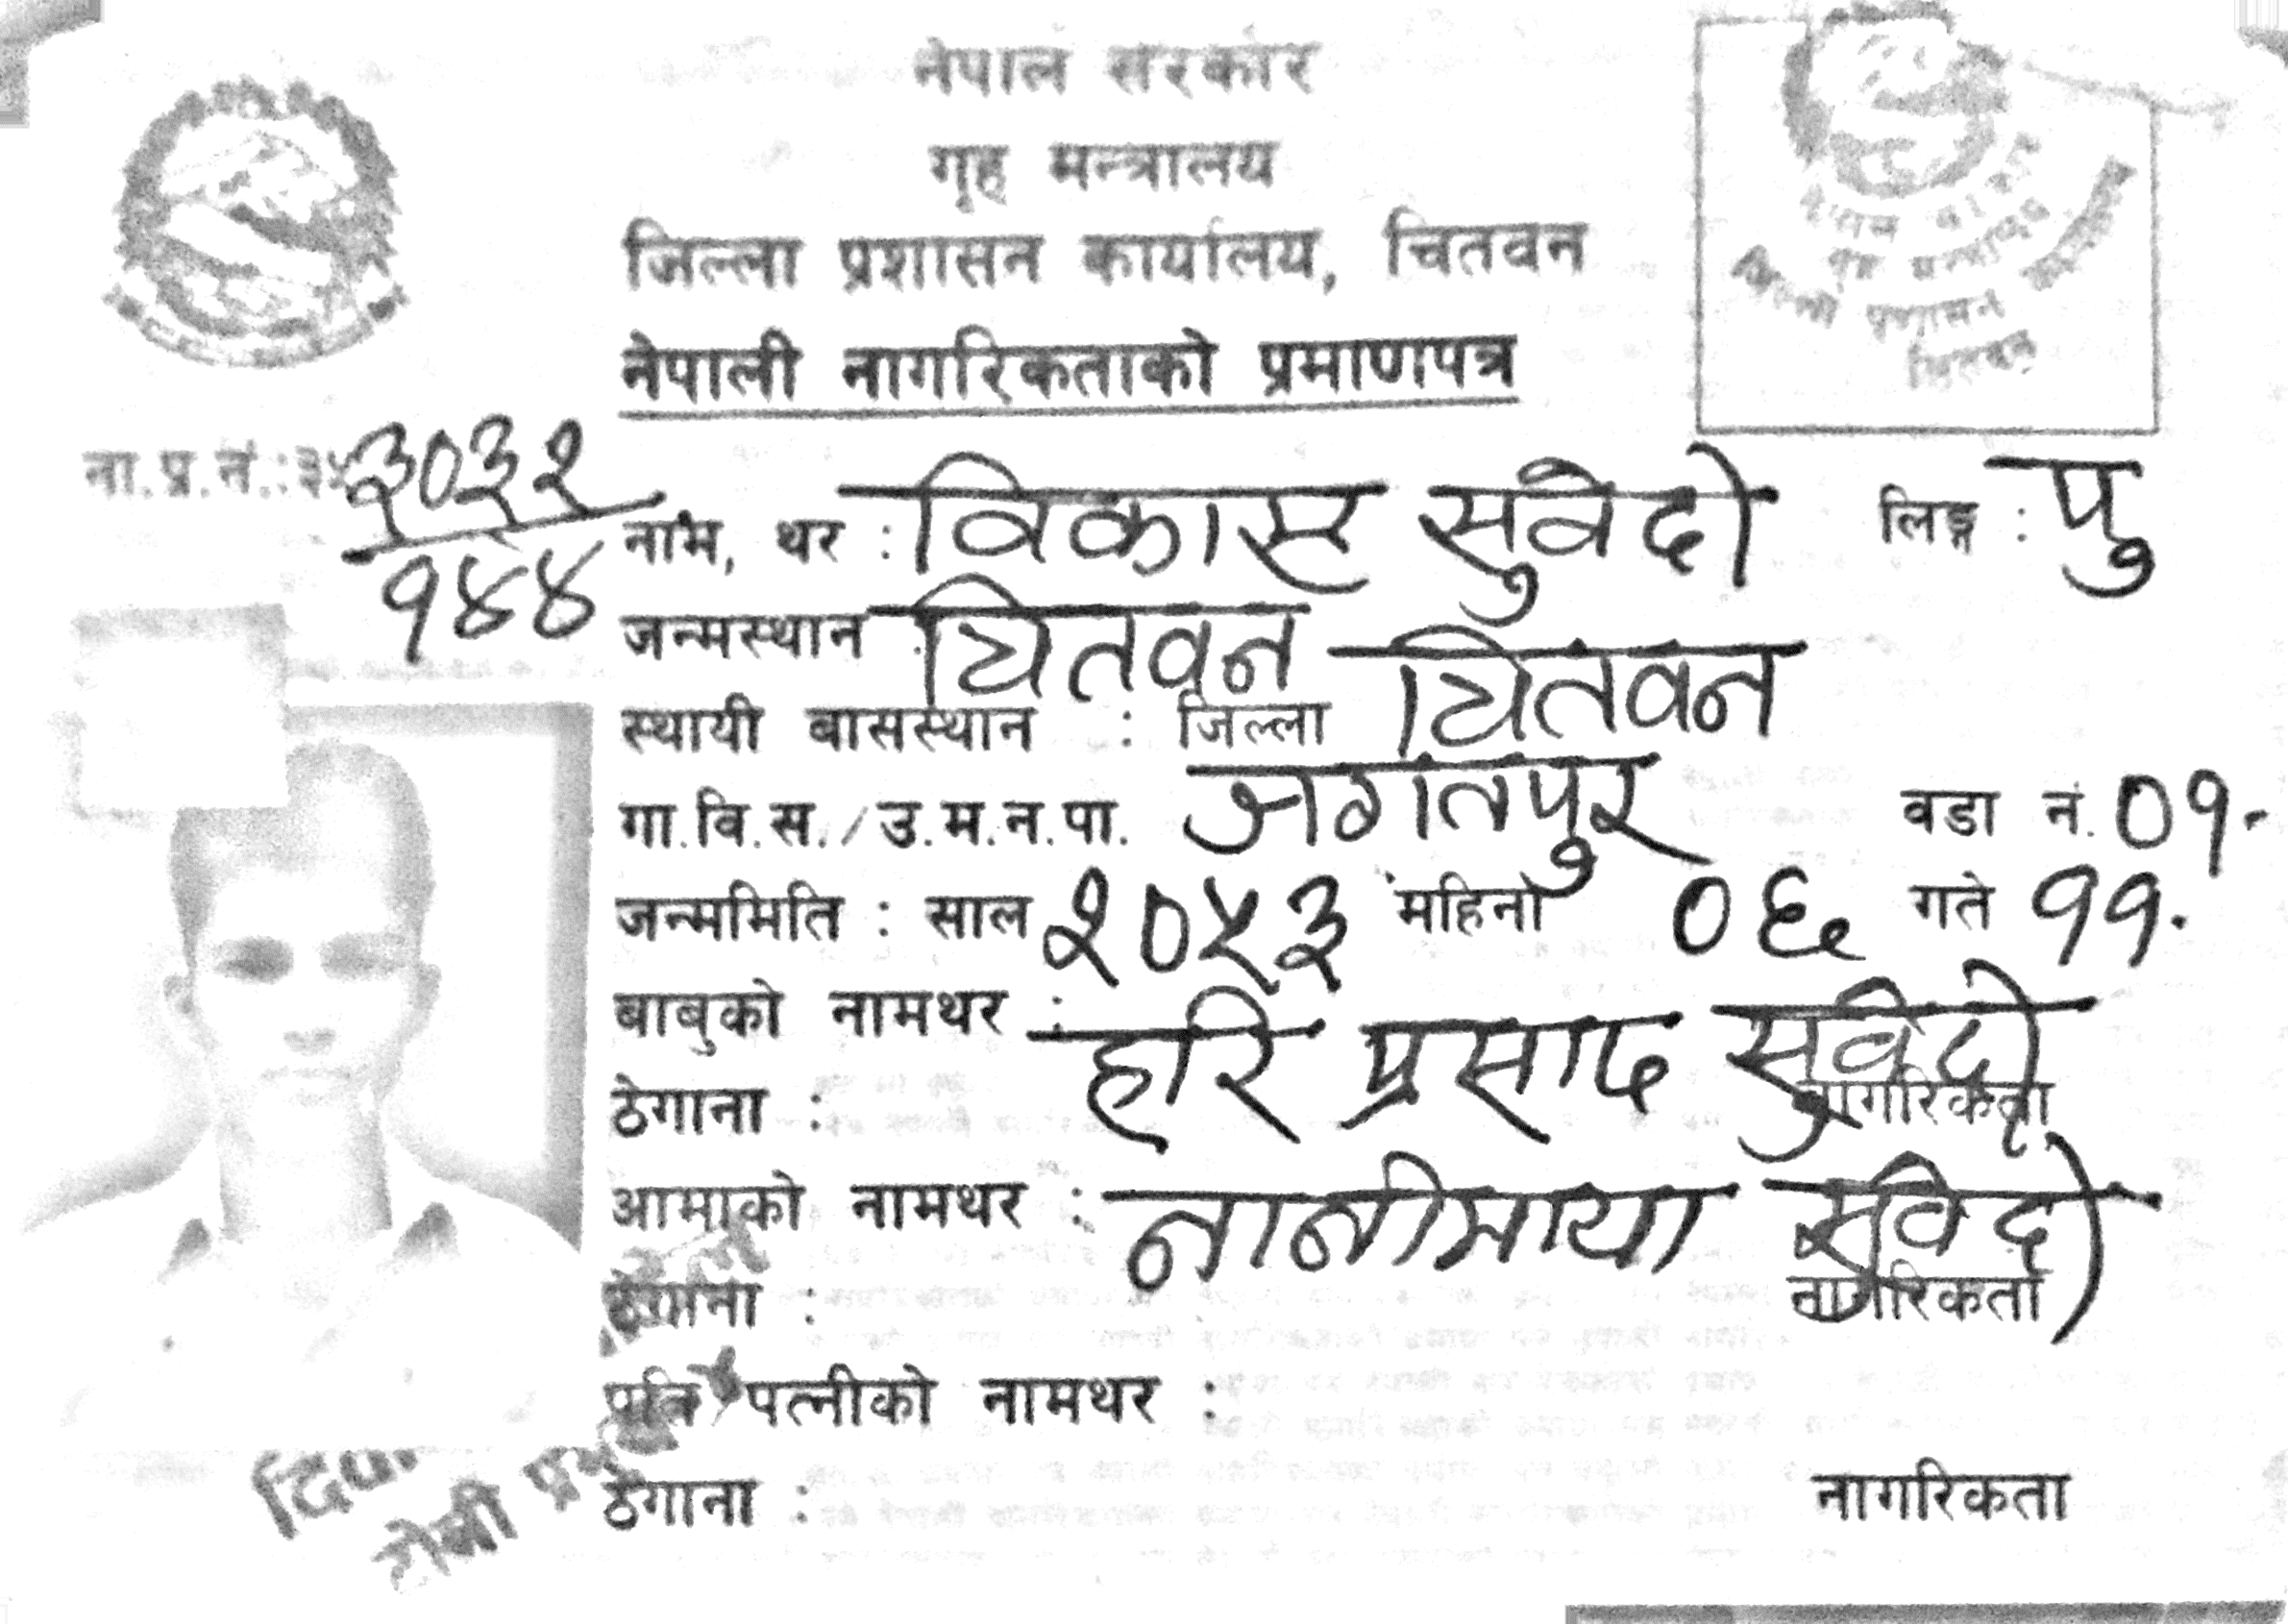 नेपाल सरकार
गृह मन्त्रालय
जिल्ला प्रशासन कार्यालय, चितवन
नेपाली नागरिकताको प्रमाणपत्र
नेपाल सरकार
गृह मन्त्रालय
जिल्ला प्रशासन कार्यालय
चितवन
ना.प्र.नं.:
३०३२
१४४
नाम, थर : विकास सुवेदी लिङ्ग : पु
जन्मस्थान : चितवन
स्थायी बासस्थान : जिल्ला चितवन
गा.वि.स./उ.म.न.पा. जगतपुर वडा नं. ०१.
जन्ममिति : साल २०५३ महिना ०६ गते ११.
बाबुको नामथर : हरि प्रसाद सुवेदी
ठेगाना : नागरिकता
आमाको नामथर : नानीमाया सुवेदी
ठेगाना : नागरिकता
पति पत्नीको नामथर :
ठेगाना : नागरिकता